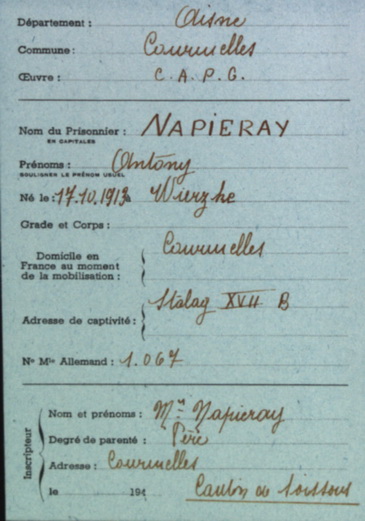 Département : Aisne
Commune : Courmelles
Œuvre : C. A. P. G.
Nom du Prisonnier : NAPIERAY
EN CAPITALES
Prénoms : Antony
SOULIGNER LE PRÉNOM USUEL
Né le : 17.10.1913 à Wierzhe
Grade et Corps :
Domicile en France au moment de la mobilisation : Courmelles
Adresse de captivité : Stalag XVII B
Nº Mle Allemand : 1.067
Inscripteur
Nom et prénoms : Mr Napieray
Degré de parenté : Père
Adresse : Courmelles
le 194 Canton de Soissons